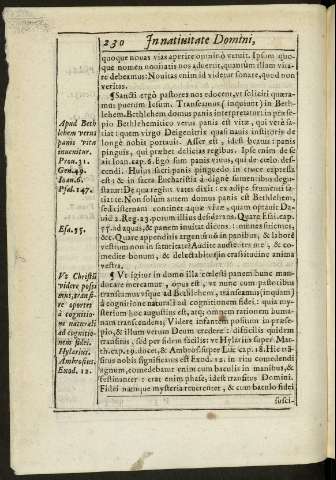 230 In nativitate Domini,
quoque novas vias aperire omninò vetuit. Ipsum quo-
que nomen novitatis nos advertit, quantùm illam vita-
re debeamus: Novitas enim id videtur sonare, quod non
veritas.
¶ Sancti ergò pastores nos edocent, ut soliciti quæra-
mus puerum Iesum. Transeamus (inquiunt) in Beth-
lehem. Bethlehem domus panis interpretatur: in præse-
pio Bethlehemitico verus panis est vitæ, qui verè sa-
tiat: quem virgo Deigenitrix quasi navis institoris de
longe nobis portavit. Asser est, idest beatus: panis
pinguis, qui præbet delicias regibus. Ipse enim de se
ait Ioan. cap. 6. Ego sum panis vivus, qui de cœlo des-
cendi. Huius sacri panis pinguedo in cruce expressa
est; & in sacra Eucharistia à dignè sumentibus degu-
statur: De qua regius vates dixit: ex adipe frumenti sa-
tiat te. Non solùm autem domus panis est Bethlehem,
sed cisternam continet aquæ vitæ, quam optavit Da-
vid 2. Reg. 23. potum illius desudarans. Quare Esai. cap.
55. ad aquas, & panem invitat dicens: omnes sitientes,
&c. Quare appenditis argentum nõ in panibus, & laborẽ
vestrum non in saturitate? Audite audientes me, & co-
medite bonum, & delectabitur in crassitudine anima
vestra.
¶ Ut igitur in domo illa cœlesti panem hunc man-
ducare mereamur, opus est, ut nunc cum pastoribus
transeamus usque ad Bethlehem, transeamus (inquam)
à cognitione naturali ad cognitionem fidei: quia my-
sterium hoc augustis est, atq; omnem rationem huma-
nam transcendens; Videre infantem positum in præse-
pio, & illum verum Deum credere: difficilis quidem
transitus, sed per fidem facilis: ut Hylarius super Mat-
th. cap. 19. docet, & Ambros. super Luc. cap. 18. Hic trã-
situs nobis significatus est Exod. 12. in ritu comedendi
agnum, comedebatur enim cum baculis in manibus, &
festinanter: erat enim phase, idest transitus Domini.
Fidei namque mysteria reverenter, & cum baculo fidei
susci-
Apud Beth
lehem verus
panis vitæ
invenitur.
Prou. 31.
Gen. 49.
Ioan. 6.
Psal. 147.
Esa. 55.
Ut Christũ
videre possi
mus, transi-
re oportet
à cognitio-
ne naturali
ad cognitio
nem fidei.
Hylarius.
Ambrosius.
Exod. 12.